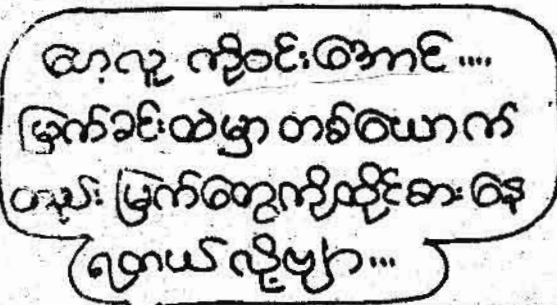 ဟေ့လူ ကိုဝင်းအောင် ....
မြက်ခင်းထဲမှာ တစ်ယောက်
တည်း မြက်တွေကိုထိုင်စားနေ
ရတယ် လို့ဗျာ ...